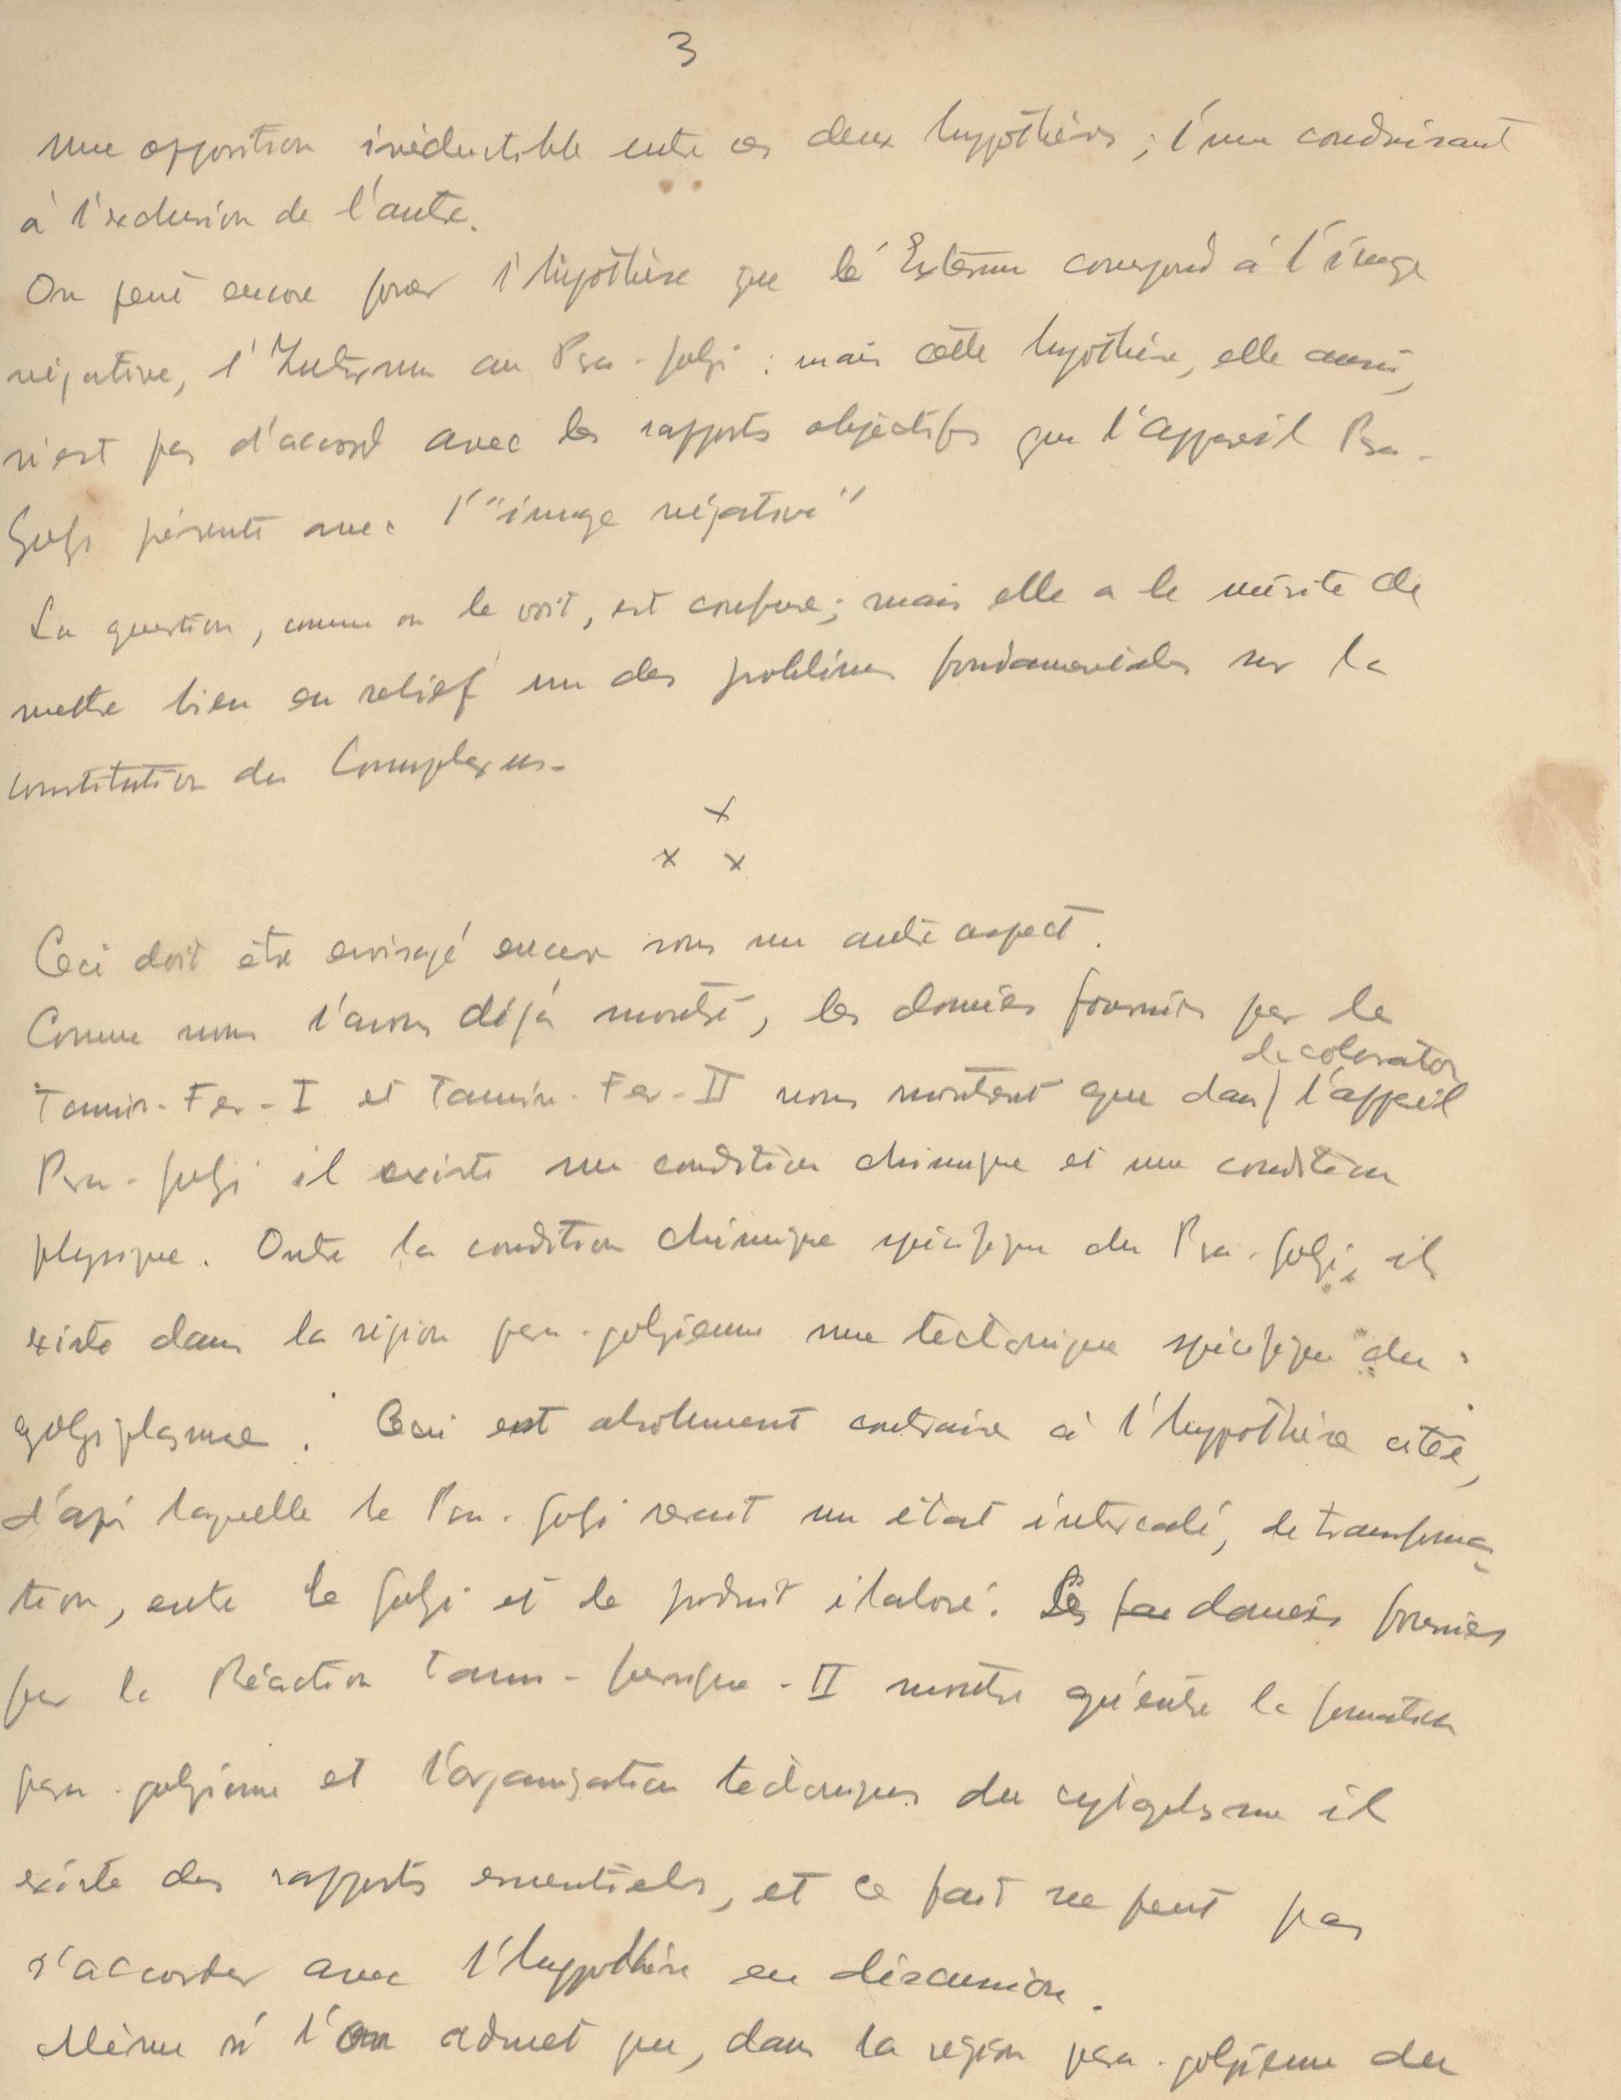 3
une opposition irréductible entre ces deux hypothèses ; l'une conduisant
à l'exclusion de l'autre.
On peut encore poser l'hypothèse que le Externum correspond à l'image
négative, l'Internum au Pra-Golgi : mais cette hypothèse, elle aussi,
n'est pas d'accord avec les rapports objectifs que l'appareil Pra-
Golgi présente avec l'"image négative"
La question, comme on le voit, est confuse ; mais elle a le mérite de
mettre bien en relief un des problèmes fondamentales sur la
constitution du Complexus.
x
x x
Ceci doit être envisagé encore sous un autre aspect.
Comme nous l'avons déjà montré, les données fournies par le
Tannin-Fer-I et Tannin-Fer-II nous montrent que dans l'appareil
Pra-Golgi il existe une condition chimique et une condition
physique. Outre la condition chimique spécifique du Pra-Golgi, il
existe dans la région pra-golgienne une tectonique spécifique du
golgiplasme. Ceci est absolument contraire à l'hypothèse citée,
d'apr laquelle le Pra-Golgi serait un état intercalé, de transforma-
tion, entre le Golgi et le produit élaboré. Les données fournies
par la Réaction Tanno-ferrique-II montre qu'entre la formation
pra-golgienne et l'organisation tectonique du cytoplasme il
existe des rapports essentiels, et ce fait ne peut pas
s'accorder avec l'hypothèse en discussion.
Même si l'on admet que, dans la région pra-golgienne du